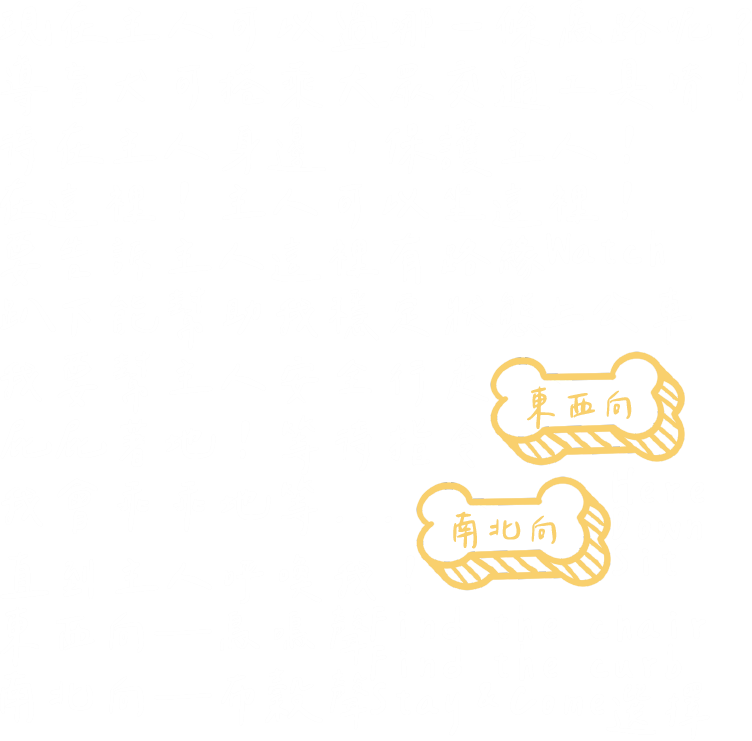 東西向
南北向